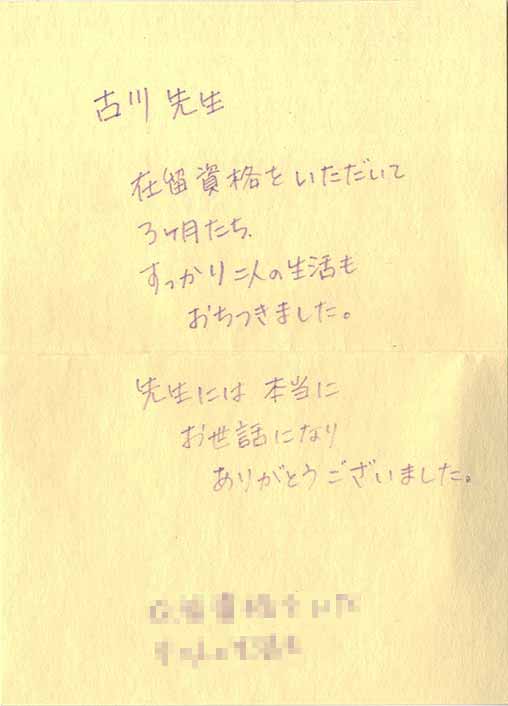 古川先生
在留資格をいただいて
3ヶ月たち、
すっかり二人の生活も
おちつきました。
先生には本当に
お世話になり
ありがとうございました。